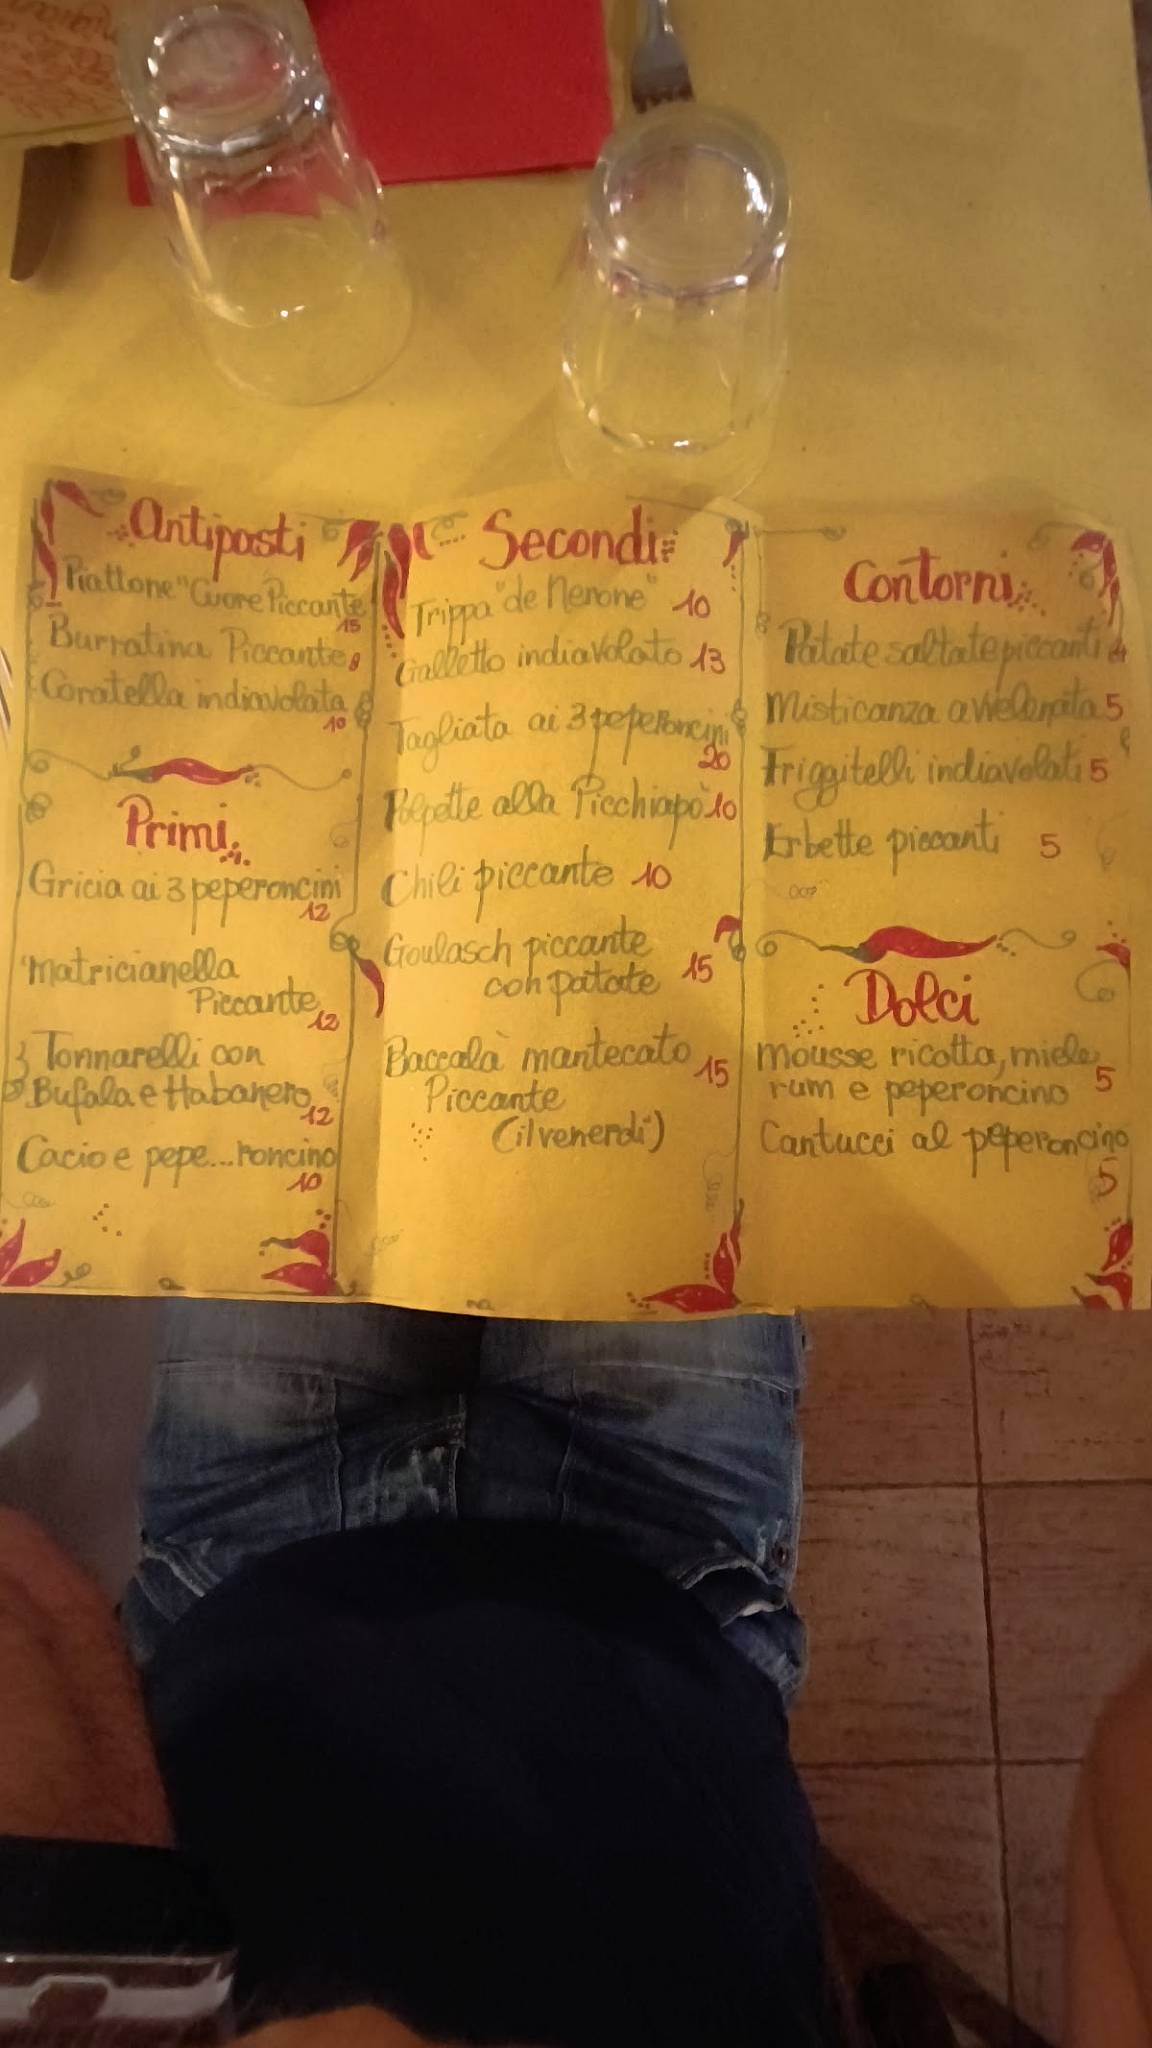 Antipasti
Piattone "Cuore Piccante"
15
Burratina Piccante 8
Coratella indiavolata
10
Primi
Gricia ai 3 peperoncini
12
Matricianella
Piccante
12
Tonnarelli con
Bufala e Habanero
12
Cacio e pepe...roncino
10
Secondi
Trippa "de Nerone" 10
Galletto indiavolato 13
Tagliata ai 3 peperoncini
20
Polpette alla Picchiapò 10
Chili piccante 10
Goulasch piccante
con patate 15
Baccalà mantecato 15
Piccante
(il venerdì)
Contorni
Patate saltate piccanti 4
Misticanza avvelenata 5
Friggitelli indiavolati 5
Erbette piccanti 5
Dolci
Mousse ricotta, miele,
rum e peperoncino 5
Cantucci al peperoncino
5